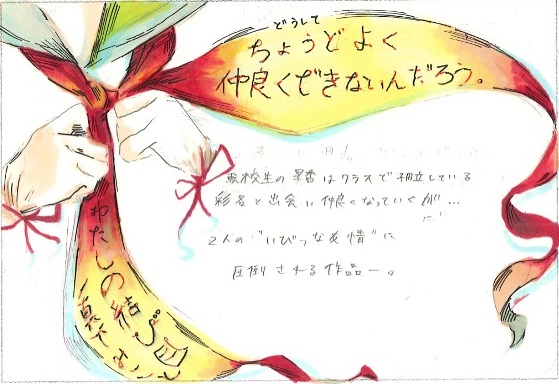 どうして
ちょうどよく
仲良くできないんだろう。
転校生の里香はクラスで孤立している
彩名と出会い仲良くなっていくが…
2人の"いびつな友情"に
圧倒される作品ー。
わたしの結び目
真下みこと